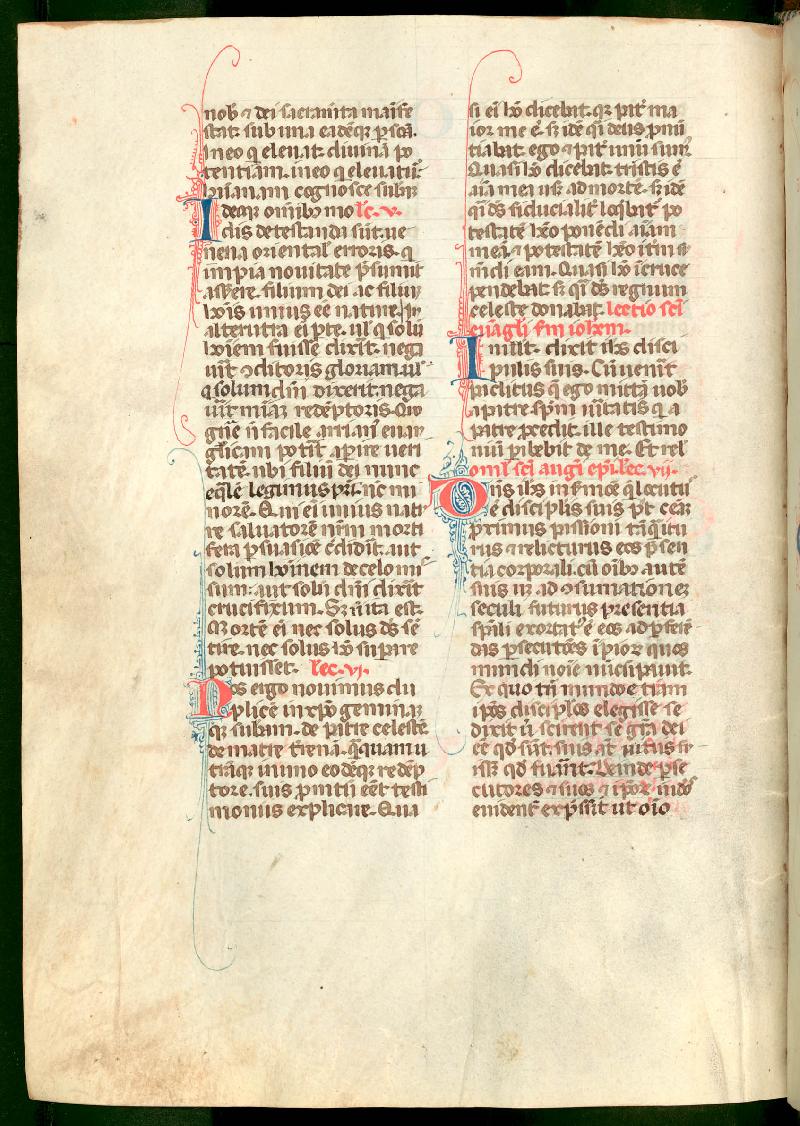 nob̄ ⁊ dei sacram̄ta manife
stat. sub una eadēq; p̱sōa.
in eo q̇ eleuat: diuinā po
tentiam. in eo q̇ eleuatur:
humanam cognosce subst̄
Ideoq; om̄ib; mo lc̄. v.
dis detestanda sūt. ue
nena oriental̄ erroris. q̇
impia nouitate p̄sumit
asserere. filium dei ac filiū
hoīs unius eē nature. In
alterutra ei p̱te. ul̄ q̇ solū
hoīem fuisse dixit. nega
uit ꝯditoris gloriam. ul̄
q̇ solum dm̄ dixerit. nega
uit m̄iaꝫ redēptoris. Quo
gn̄e n̄ facile arriani euan
glicam pōtit aperire ueri
tatē. ubi filiū dei nunc
eq̄lē legimus p̄ri. nc̄ mi
norē. Qui ei unius natu
re saluatorē nr̄m morti
fera p̱suasiōe c̄didit. aut
solum hoīnem de celo mi
sum: aut solū dm̄ dixit
crucifixum. Sꝫ n̄ ita est.
Mortē ei nec solus ds̄ sē
tire. nec solus hō supare
potuisset. lec. vi.
Nos ergo nouimus du
plicē in xp̄o genituraꝫ
qꝫ subam. de patre celestē
de matre trenā. q̄quam u
trāqꝫ in uno eodēqꝫ redēp
tore. suis p̱mitti eēt testi
monuis explicare. Qua
si ei hō dicebat. qꝫ pat̄ ma
ior me ē. sꝫ idē qi deus p̱nū
tiabat. ego ⁊ pat̄ unū sum̄.
Quasi hō dicebat. tristis ē
aīa mea usqꝫ ad mortē. sꝫ idē
qi ds̄ fiducialit̄ loq̄bat̄ po
testatē heo ponēdi aīam
meā. ⁊ potestatē heo itm̄ su
m̄di eam. Quasi hō in cruce
pendebat sꝫ qi ds̄ regnum
celeste donabat. lectio sc̄i
euāgli s̄m ioh̄em.
In illo t. dixit ih̄s disci
pulis suis. Cū uenīt
p̱aclitus q̄ ego mittā uob̄
a patre sp̄m u̇itatis q̇ a
patre p̱cedit. ille testimo
niū p̱hibebit de me. Et rel̄
omī. sc̄i augi epī. lec. vii.
Dn̄s ih̄s in s̄mōe q̄ locutus
ē disciplis suis p̄t cenā
p̱ximus passioni tāq̄ itu
rus ⁊ relicturus eos p̄sen
tia corporali. cū oīb; autē
suis uꝫ ad ꝯsumationeꝫ
seculi futurus presentia
sp̄ali exortat̄ ē eos ad p̱feren
das p̱secutōes īpior̄ quos
mundi noīe nūcupauit.
Ex quo tn̄ mundo etiam
ip̄os discip̱los elegisse se
dixit ut scirent se gr̄a dei
eē qd̄ sūt. suis at̄ uitiis fu
isse qd̄ fuer̄unt. Deinde p̱se
cutores ⁊ suos ⁊ ip̄or̄ iudeos
euident̄ exp̱ssit ut oīo